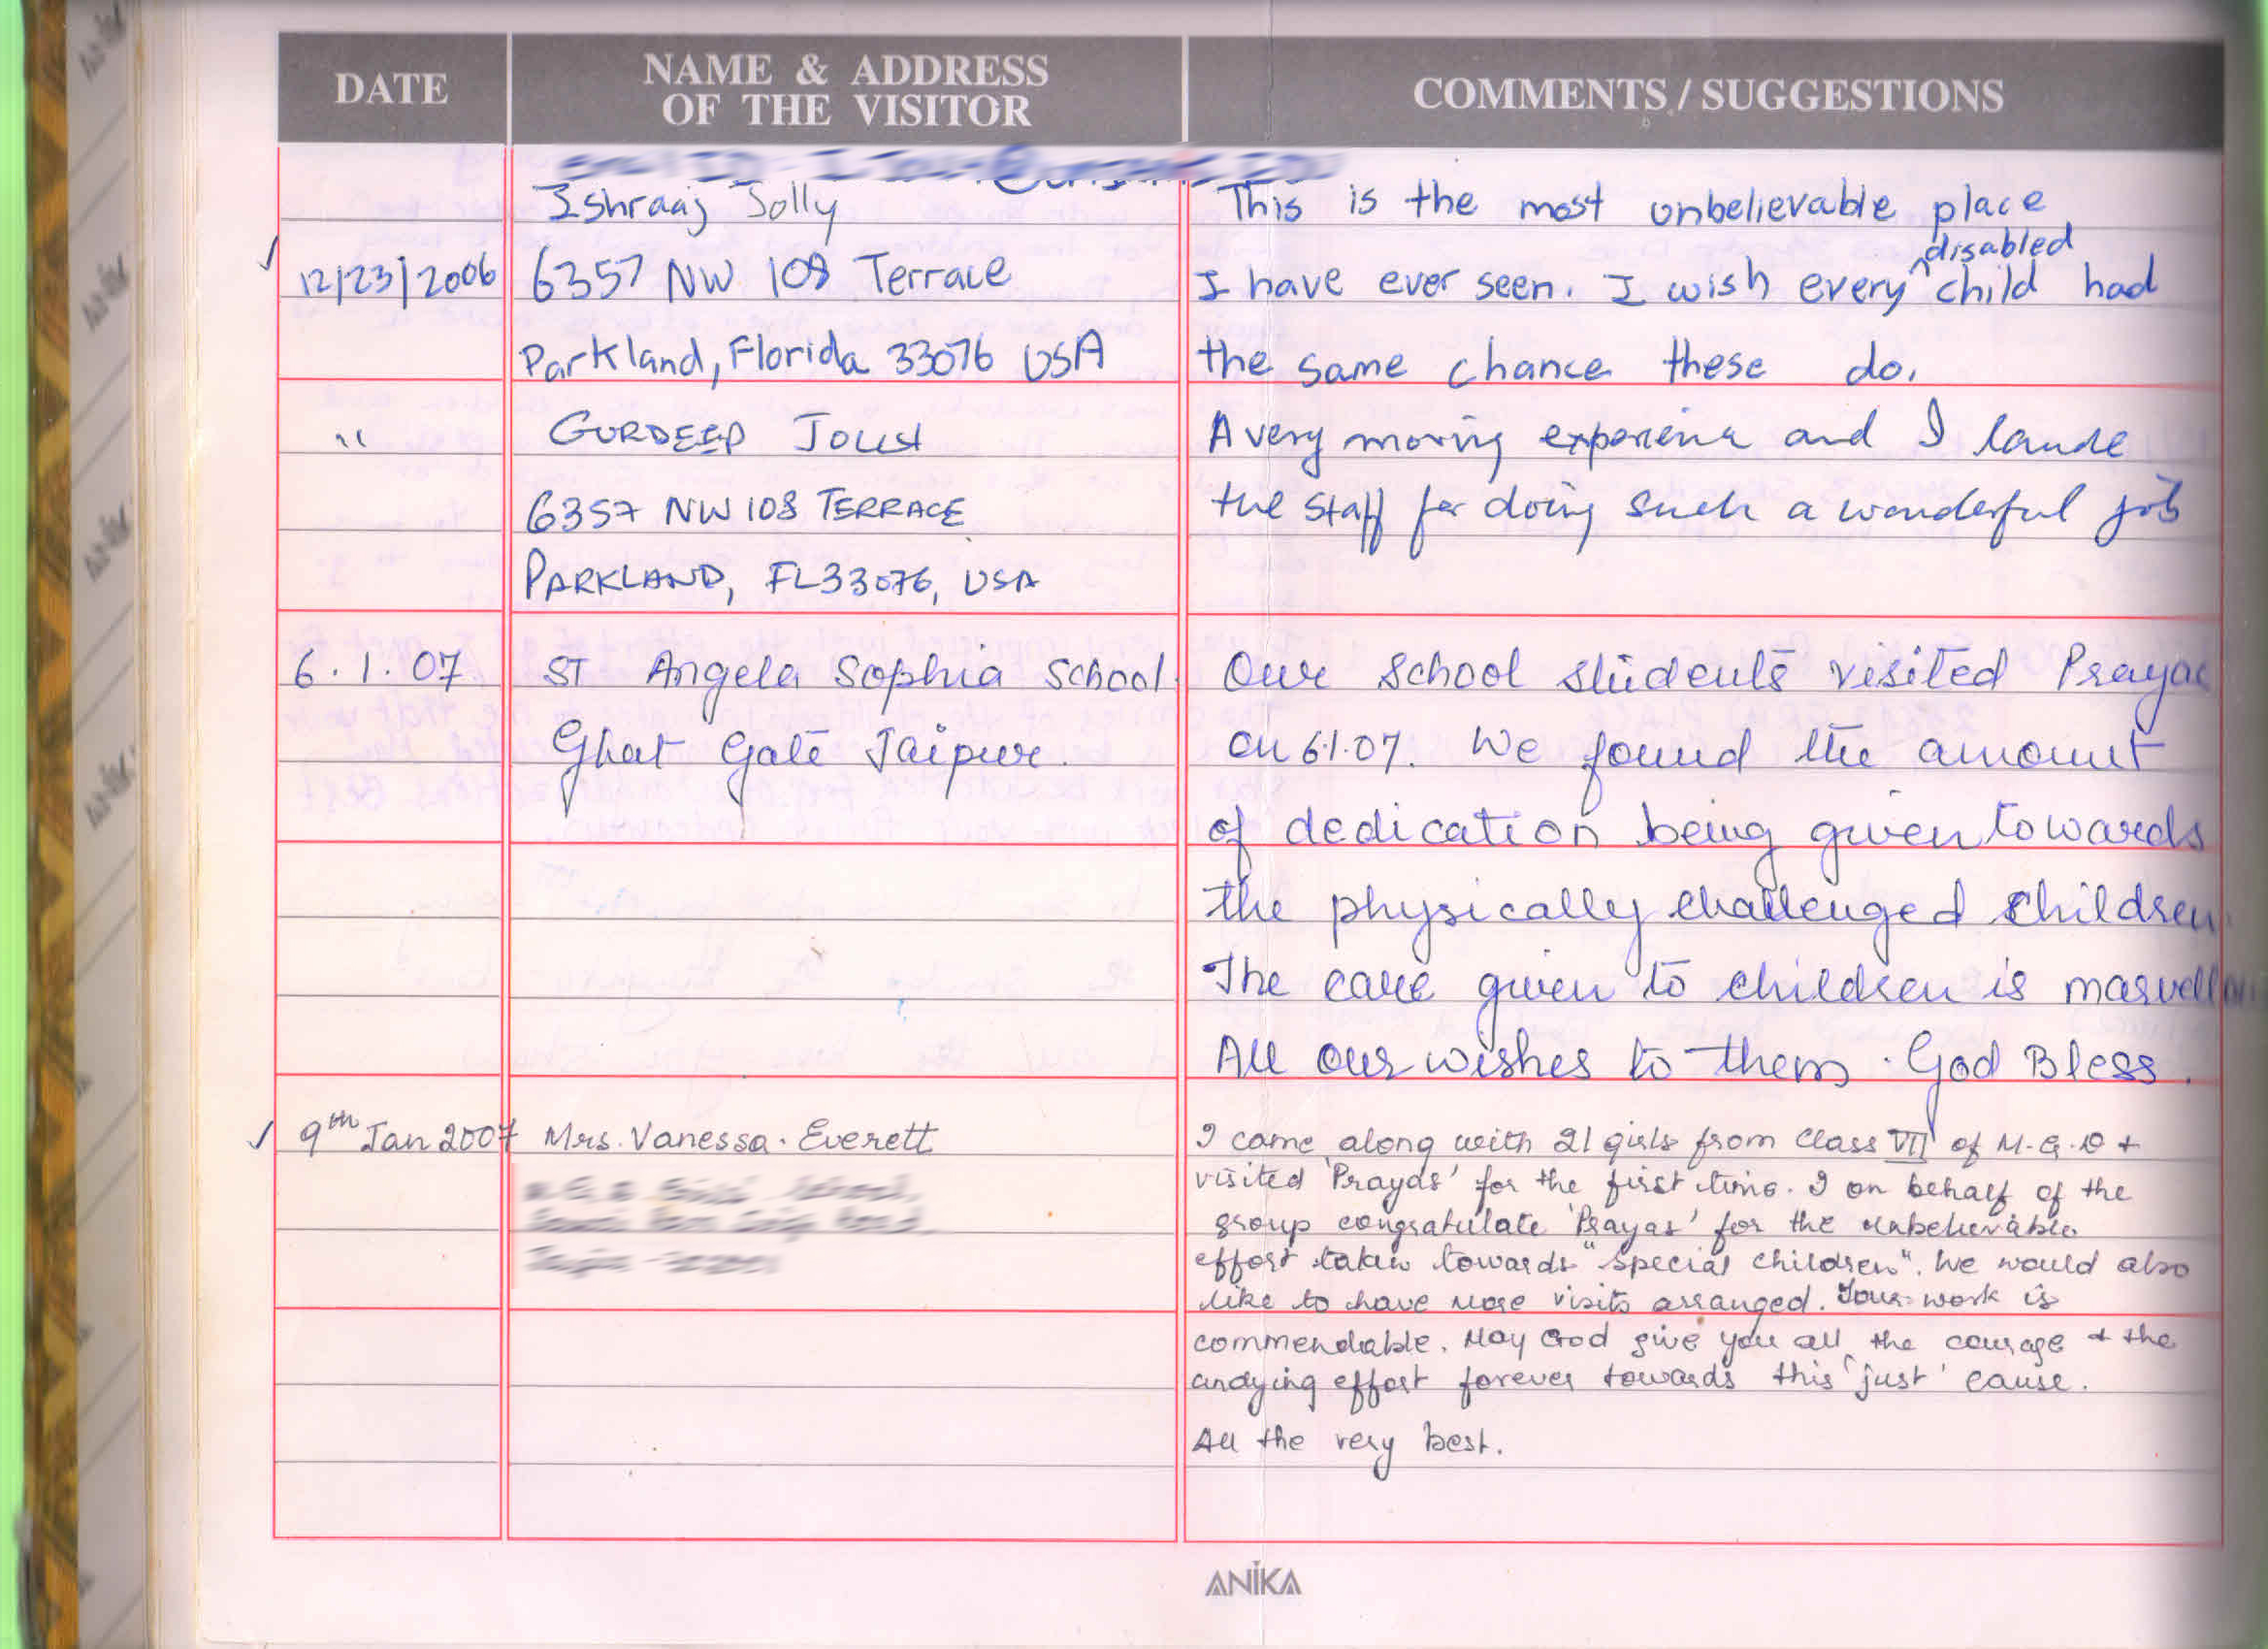 DATE
NAME & ADDRESS
OF THE VISITOR
COMMENTS / SUGGESTIONS
Ishraaj Jolly
12/23/2006 6357 NW 108 Terrace
Parkland, Florida 33076 USA
This is the most unbelievable place
disabled
I have ever seen. I wish every ^ child had
the same chance these do.
" GURDEEP JOLLY
6357 NW 108 TERRACE
PARKLAND, FL 33076, USA
A very moving experience and I laude
the staff for doing such a wonderful job
6.1.07 ST Angela Sophia School
Ghat Gate Jaipur.
Our School students visited Prayas
on 6.1.07. We found the amount
of dedication being given towards
the physically challenged children.
The care given to children is marvellous
All our wishes to them. God Bless.
9th Jan 2007 Mrs. Vanessa. Everett
I came along with 21 girls from Class VII of M.G.D +
visited 'Prayas' for the first time. I on behalf of the
group congratulate 'Prayas' for the unbelievable
effort taken towards "special children". We would also
like to have more visits arranged. Your work is
commendable. May God give you all the courage + the
undying effort forever towards this 'just' cause.
All the very best.
ANIKA